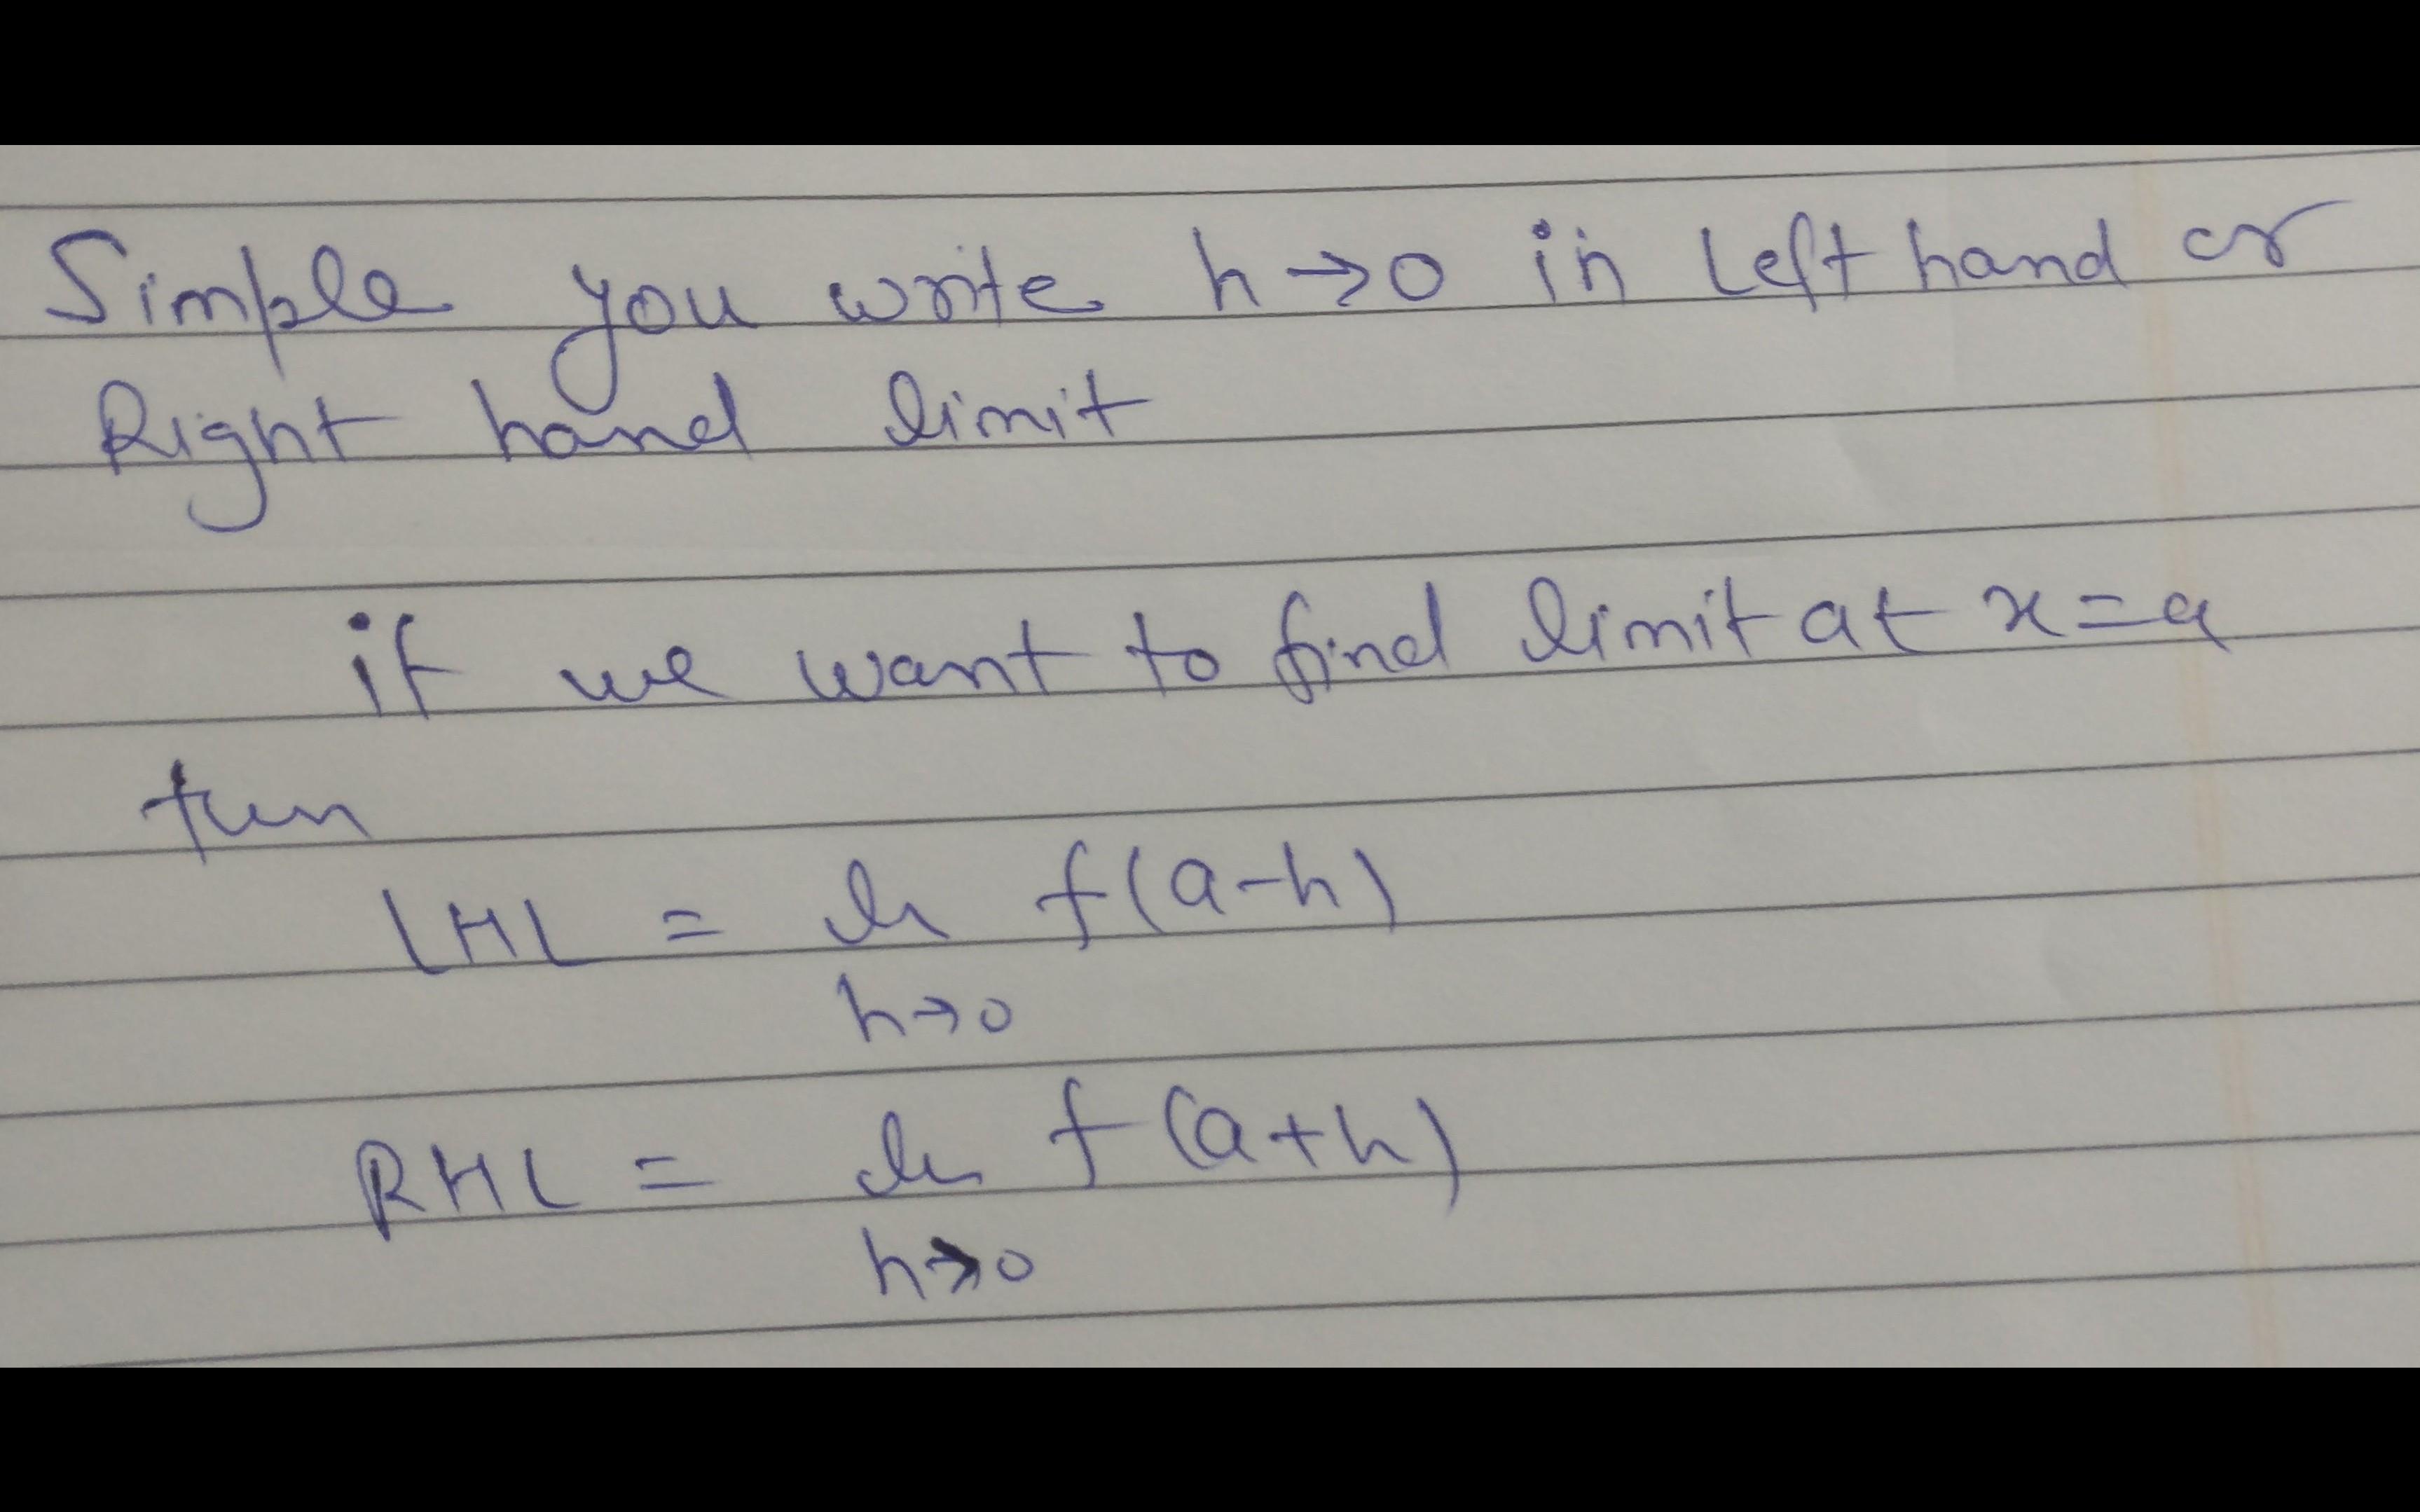 Simple you write h→0 in left hand or
Right hand limit
if we want to find limit at x=a
then
LHL = lim f(a-h)
h→0
RHL = lim f(a+h)
h→0